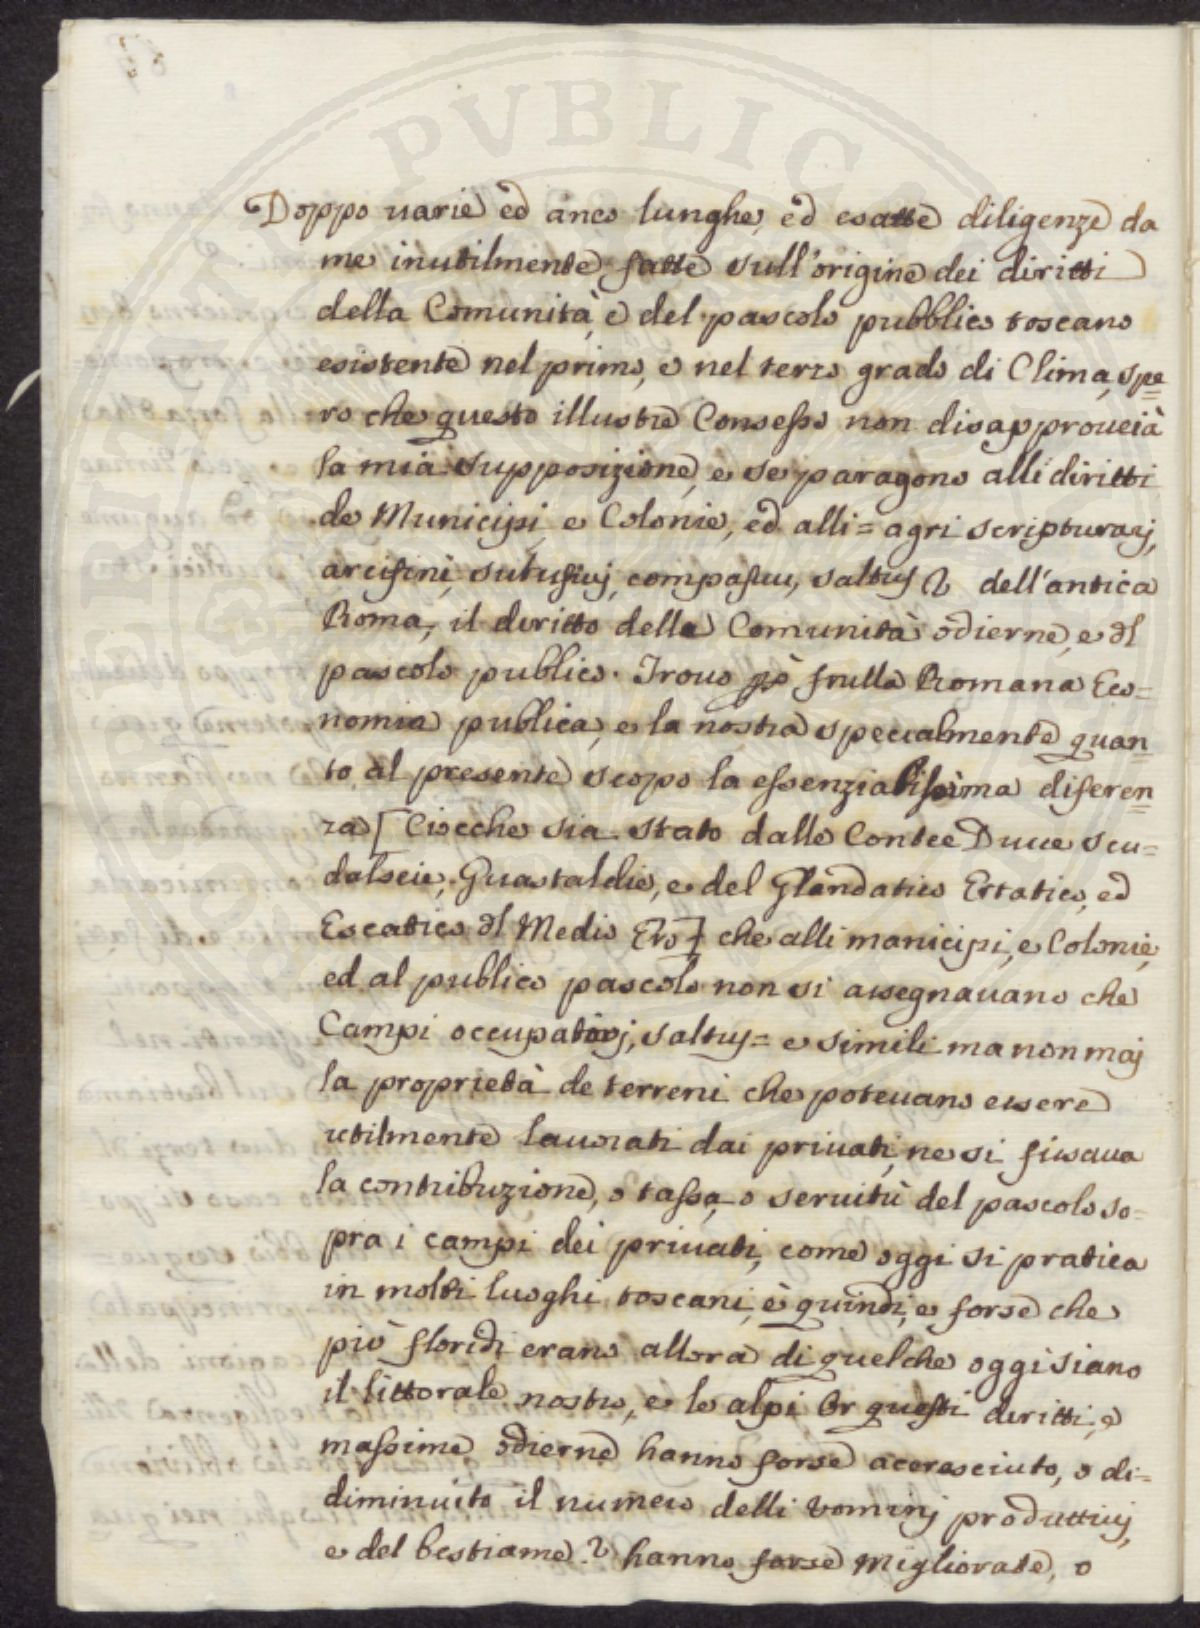 Doppo varie ed anco lunghe, ed esatte diligenze da
me inutilmente fatte sull'origine dei diritti
della Comunità, e del pascolo pubblico toscano
esistente nel primo, e nel terzo grado di Clima, spe=
ro che questo illustre Consesso non disapproverà
la mia supposizione, e se paragono alli diritti
de Municipi e Colonie, ed alli = agri scripturarj,
arcifinj, subsicivj, compascui, saltus &c dell'antica
Roma, il diritto delle Comunità odierne, e dl
pascolo publico. Trovo però frulla Romana Eco=
nomia publica, e la nostra specialmente quan=
to al presente scopo la essenzialissima diferen=
za [Ciocche sia stato dalle Contee Ducee scu=
dalscie, Guastaldie, e del Glandatico Ertatico, ed
Escatico dl Medio Evo] che alli manicipi, e Colonie,
ed al publico pascolo non si assegnavano che
Campi occupatorj, saltus = e simili ma non maj
la proprietà de terreni che potevano essere
utilmente lavorati dai privati, ne si fissava
la contribuzione, o tassa, o servitù del pascolo so=
pra i campi dei privati, come oggi si pratica
in molti luoghi toscani, e quindi, e forse che
più floridi erano allora di quelche oggi siano
il littorale nostro, e le alpi Or questi diritti, e
massime odierne hanno forse accresciuto, o di=
diminuito il numero delli Uominj produttivj,
e del bestiame? hanno forse migliorate, o